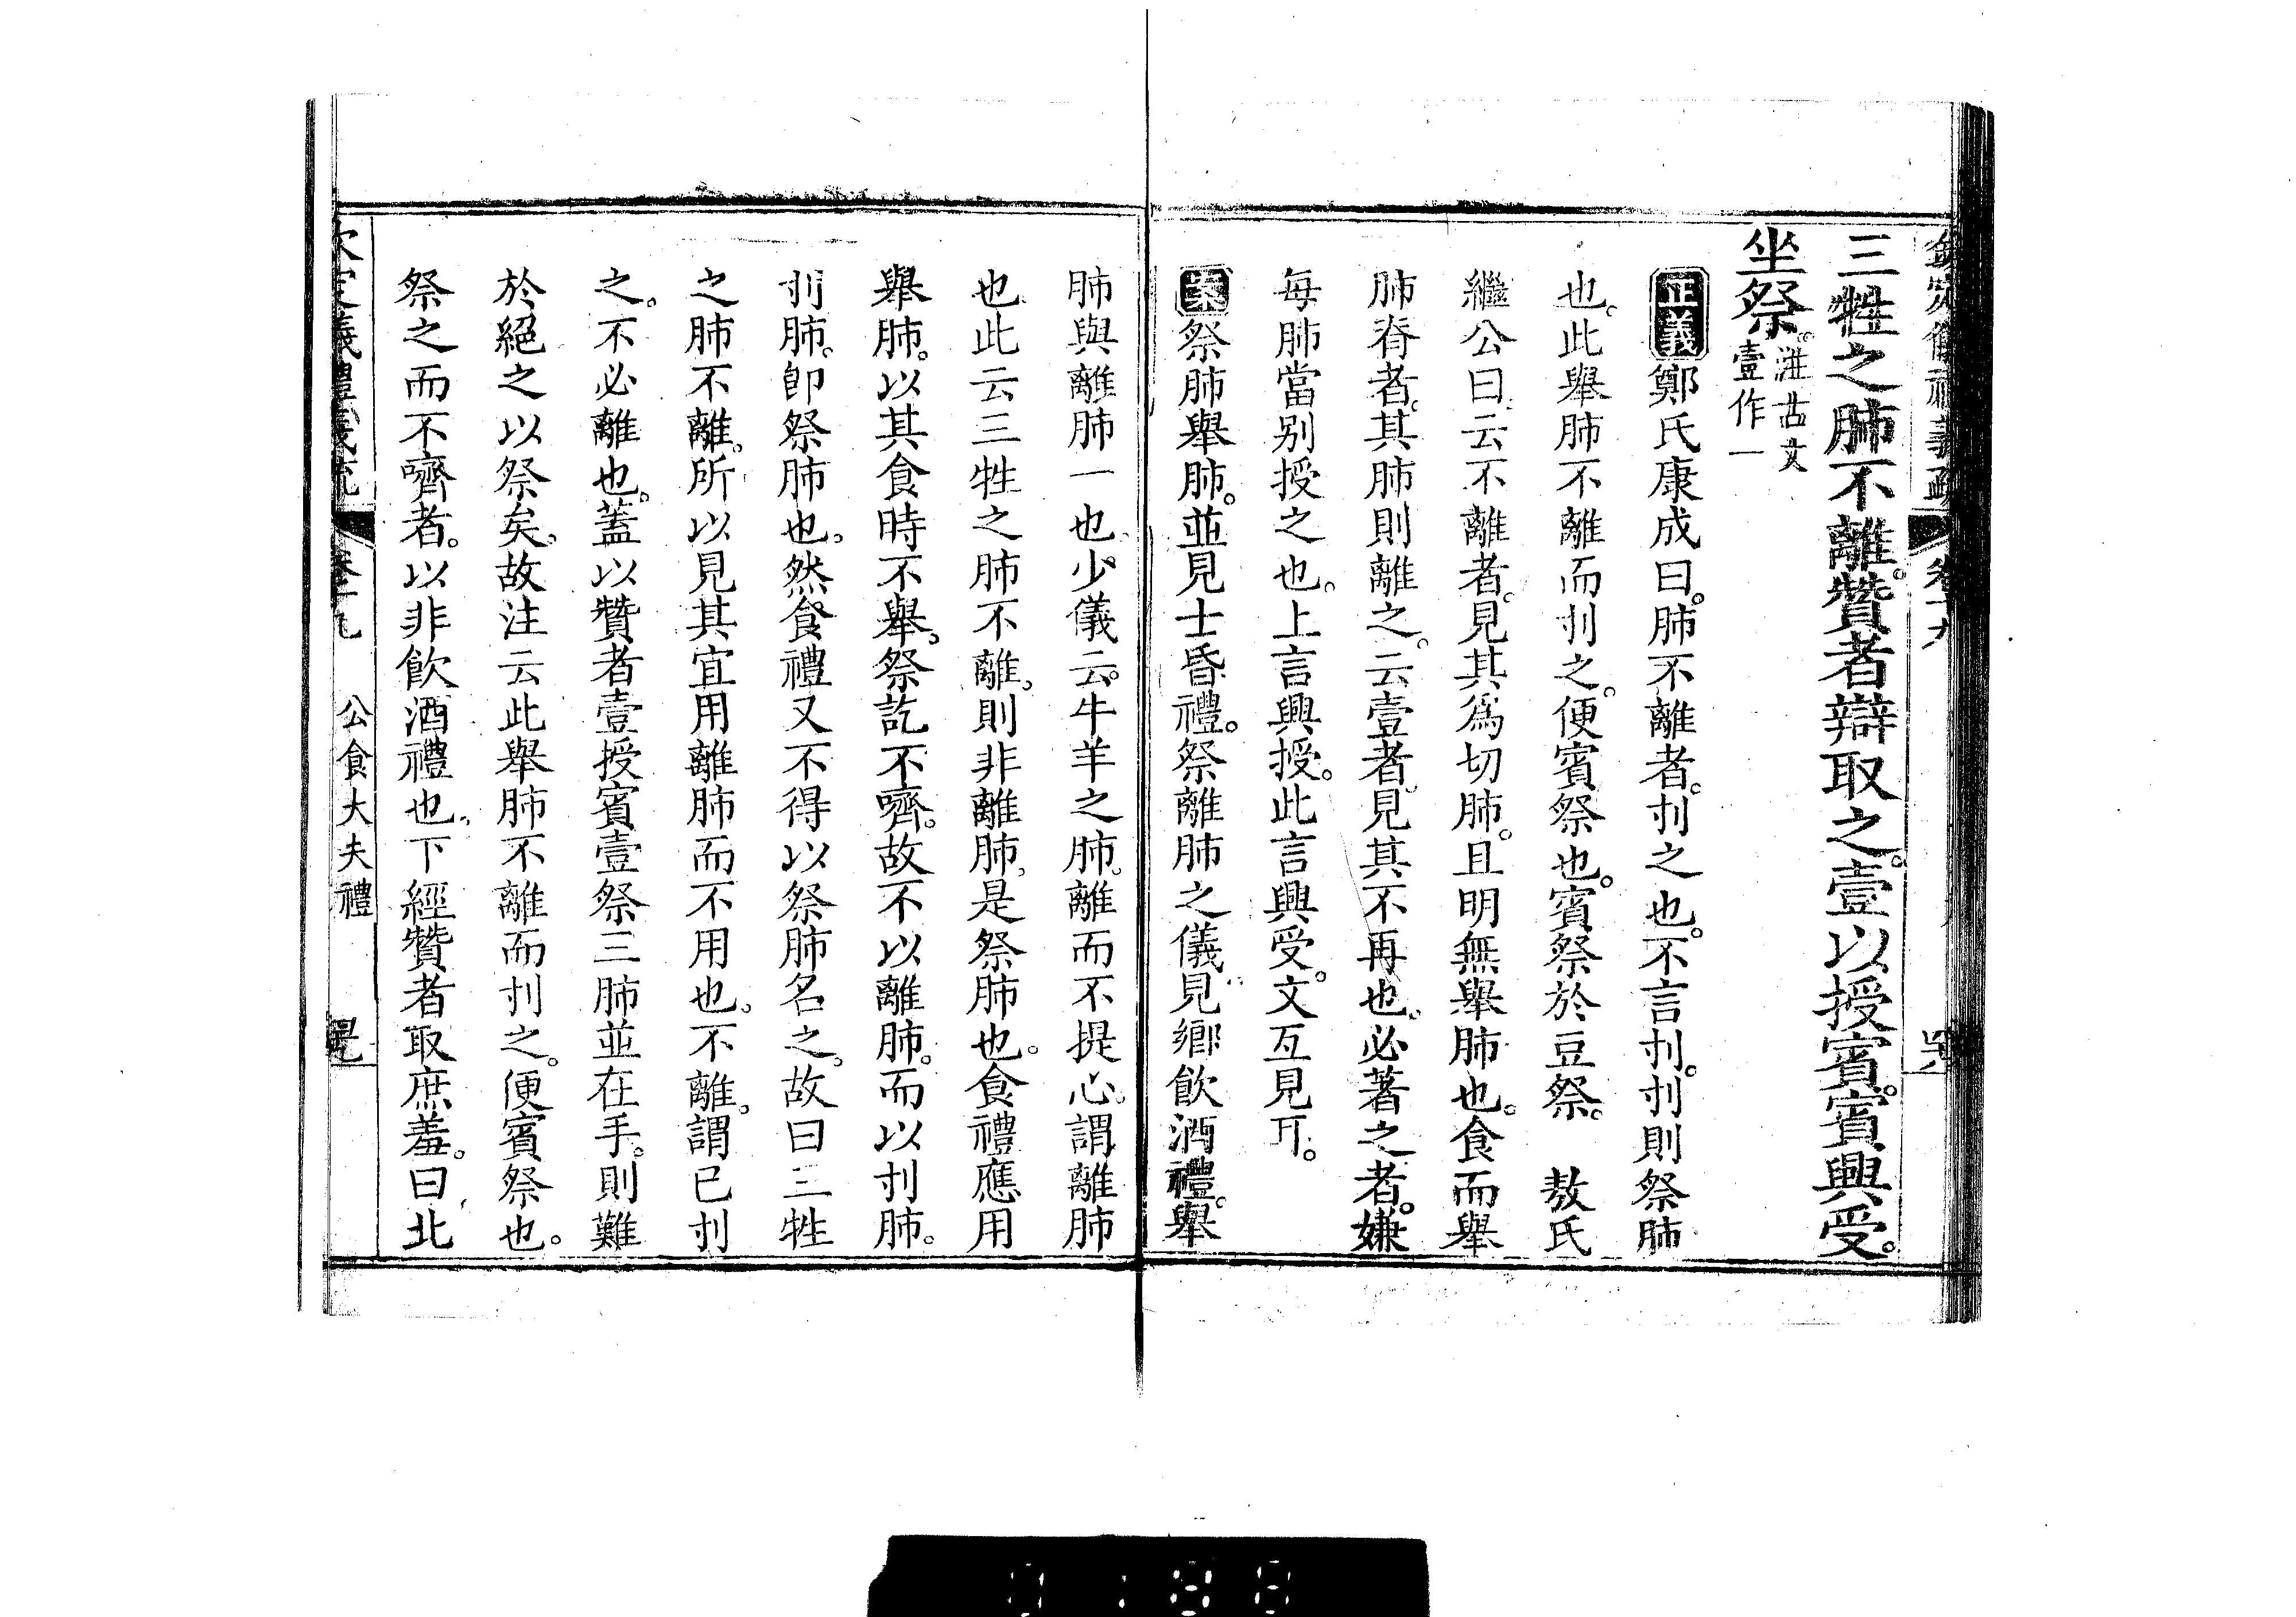 欽定儀禮義疏 卷十九
三牲之肺不離。贊者辯取之。壹以授賓。賓興受。
坐祭。注古文壹作一
正義鄭氏康成曰。肺不離者。刌之也。不言刌。刌則祭肺
也。此舉肺不離而刌之。便賓祭也。賓祭於豆祭。 敖氏
繼公曰。云不離者。見其爲切肺。且明無舉肺也。食而舉
肺脊者。其肺則離之。云壹者。見其不再也。必著之者。嫌
每肺當別授之也。上言興授。此言興受。文互見耳。
案祭肺舉肺。並見士昏禮。祭離肺之儀見鄉飲酒禮。舉
肺與離肺一也。少儀云。牛羊之肺。離而不提心。謂離肺
也。此云三牲之肺不離。則非離肺。是祭肺也。食禮應用
舉肺。以其食時不舉。祭訖不嚌。故不以離肺。而以刌肺。
刌肺。卽祭肺也。然食禮又不得以祭肺名之。故曰三牲
之肺不離。所以見其宜用離肺而不用也。不離。謂已刌
之。不必離也。蓋以贊者壹授賓壹祭三肺並在手。則難
於絕之以祭矣。故注云此舉肺不離而刌之。便賓祭也。
祭之而不嚌者。以非飲酒禮也。下經贊者取庶羞。曰北
欽定儀禮義疏 卷十九 公食大夫禮